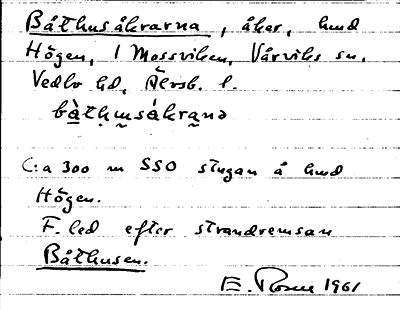 Båthusåkrarna, åker, hmd
Högen, l Mossviken, Vårviks sn,
Vedbo hd, Älvsb. l.
C:a 300 m SSO stugan å hmd
Högen.
F. led efter strandremsan
Båthusen.
E. Rosen 1961